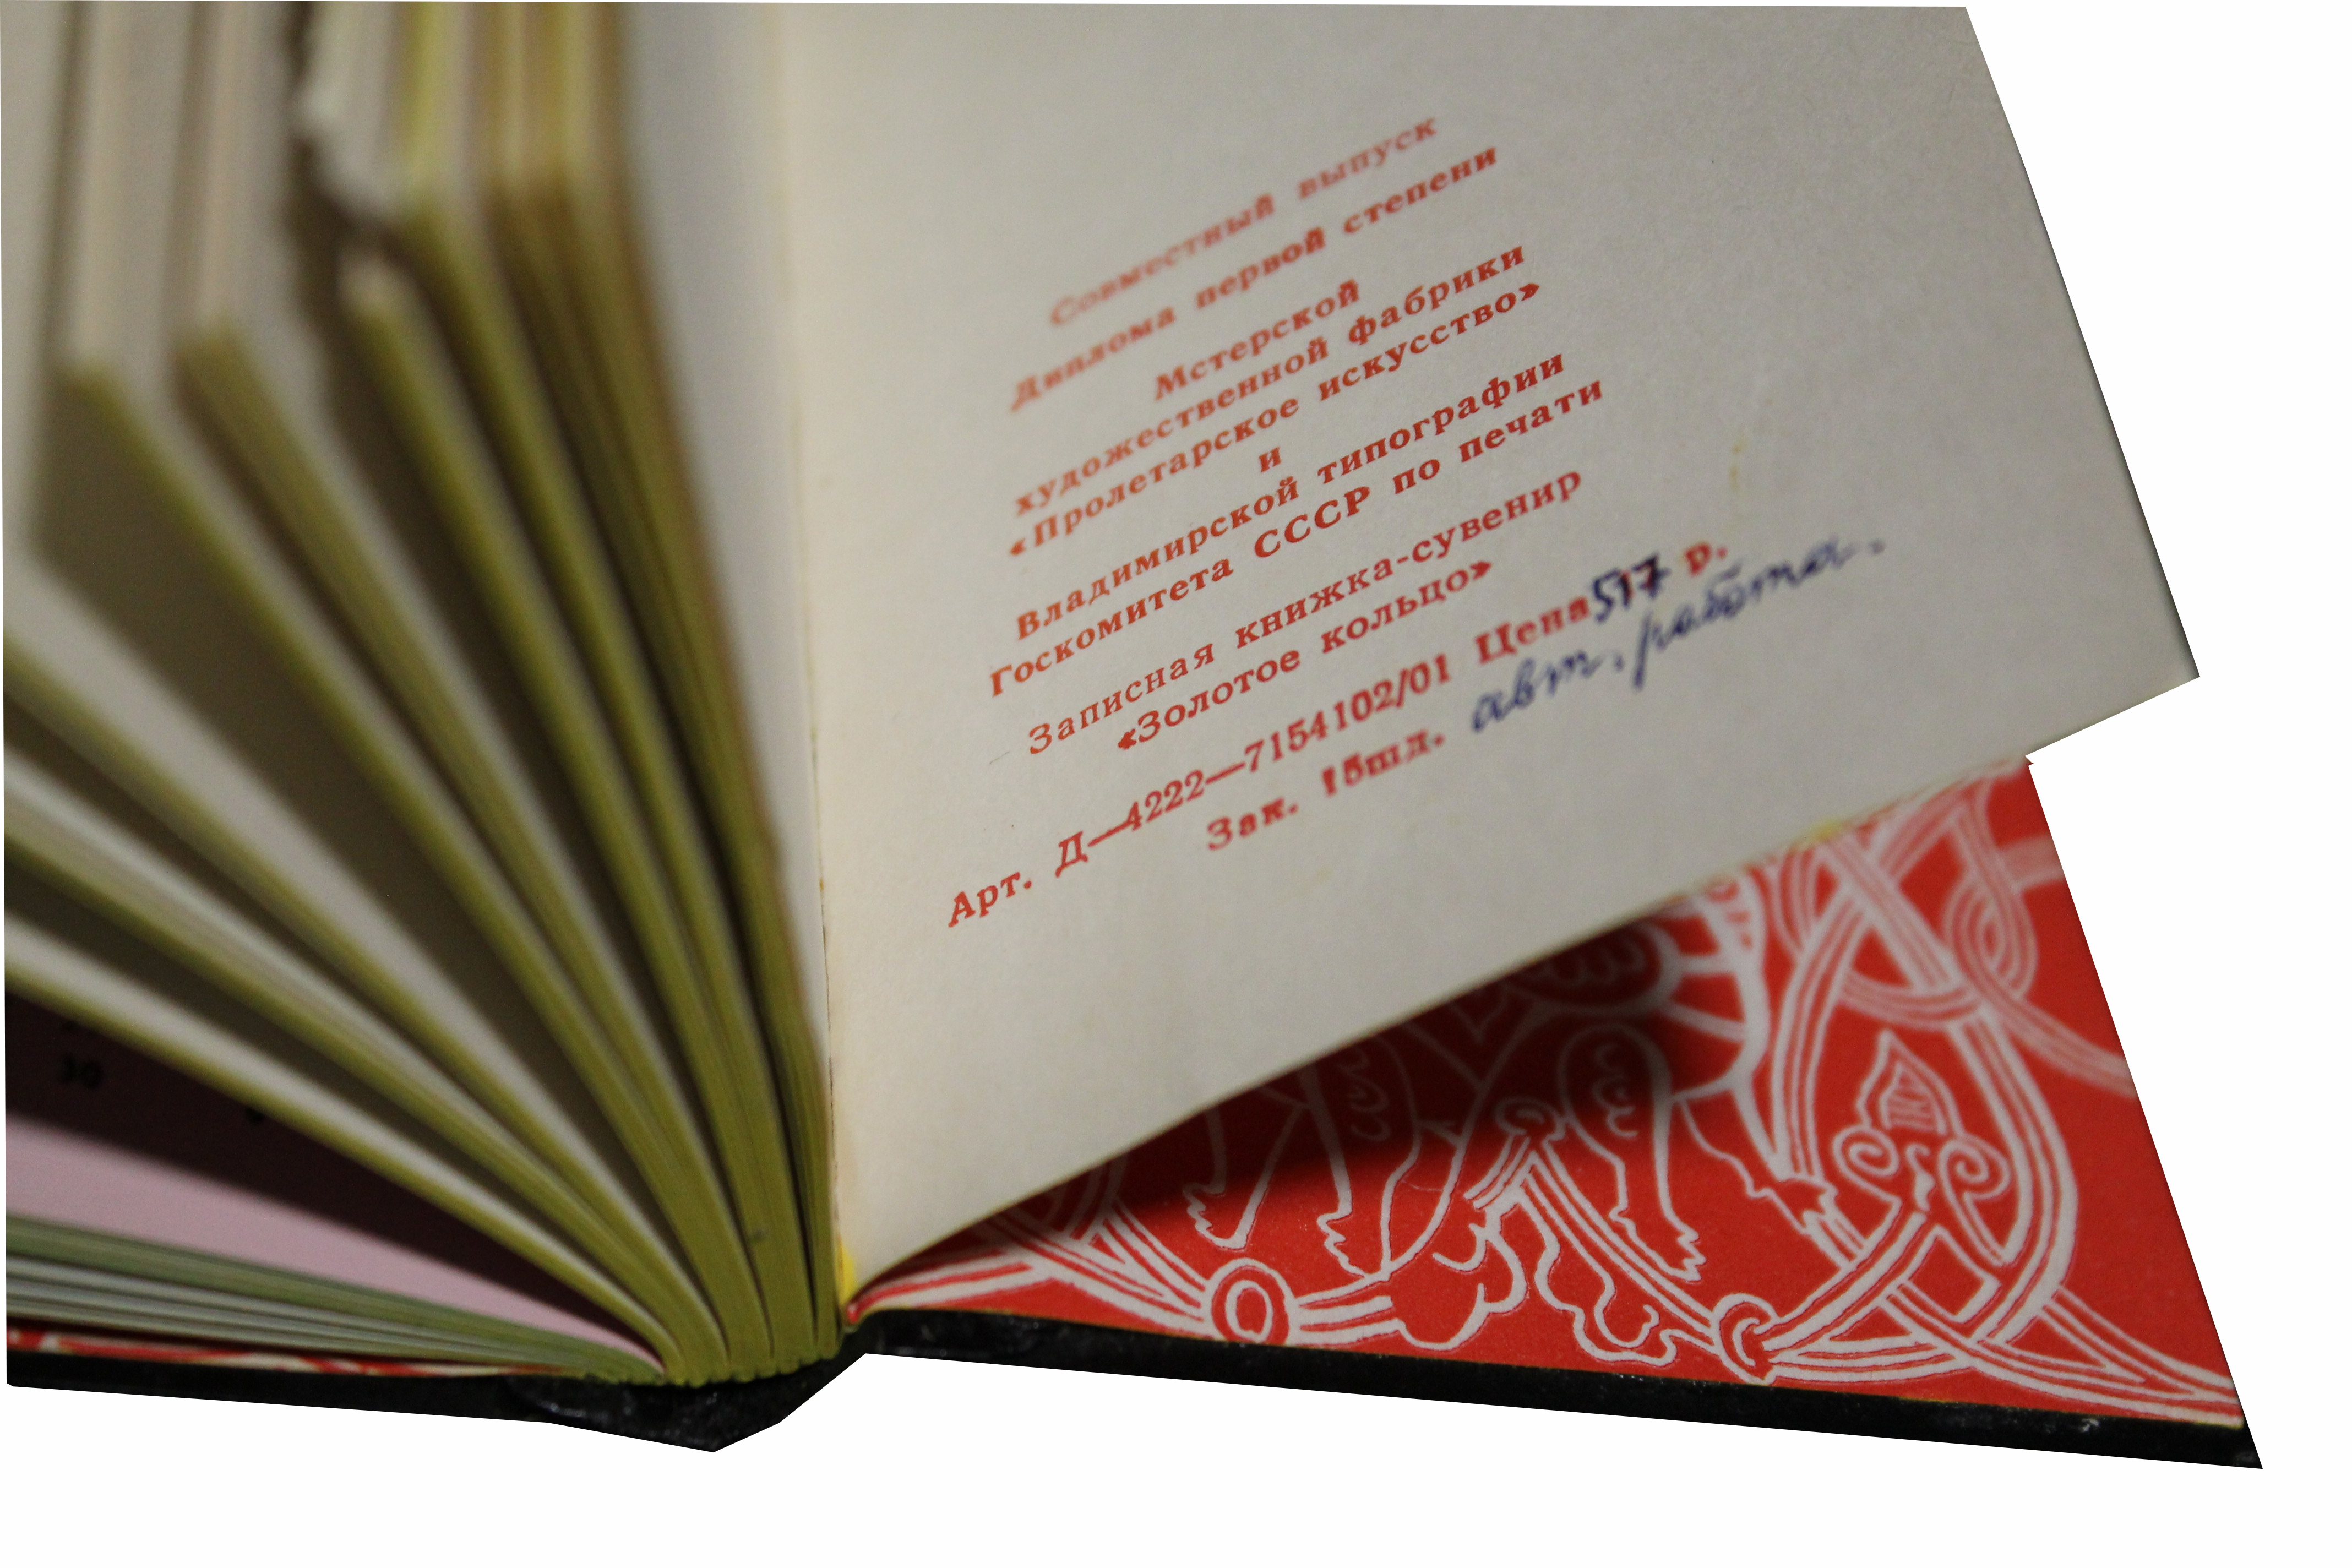 Совместный выпуск
Диплома первой степени
Мстерской
художественной фабрики
«Пролетарское искусство»
и
Владимирской типографии
Госкомитета СССР по печати
Записная книжка-сувенир
«Золотое кольцо»
Арт. Д—4222—7154102/01 Цена 517 р.
Зак. 15шд. авт. работа.
30